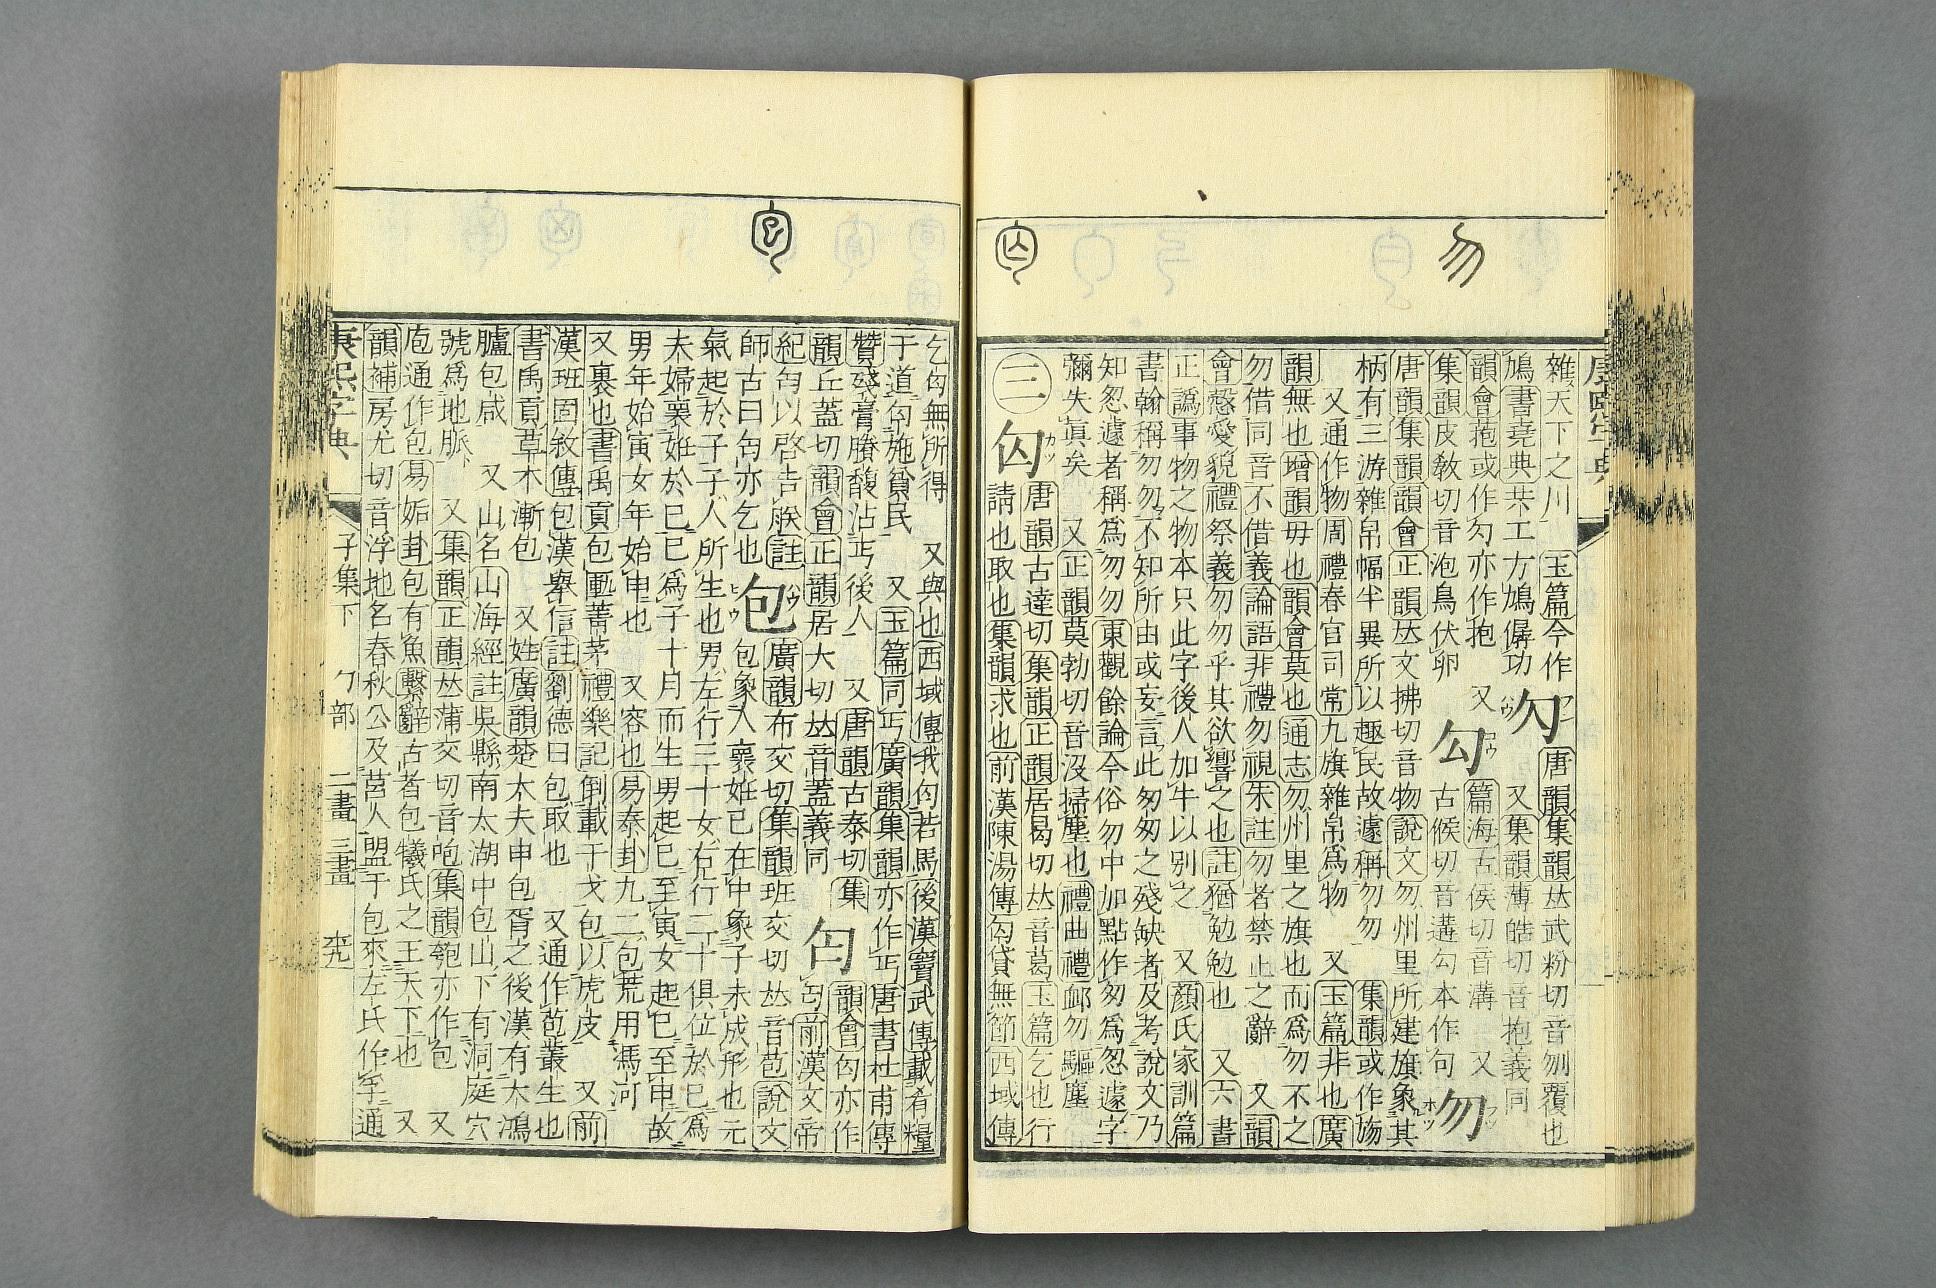 雜天下之川 玉篇今作
鳩書堯典共工方鳩僝功
勽
唐韻集韻𠀤武粉切音刎覆也
又集韻薄皓切音抱義同 又
韻會菢或作勽亦作抱
集韻皮敎切音泡鳥伏卵
勾
篇海古侯切音溝 又
古候切音遘勾本作句
勿
唐韻集韻韻會正韻𠀤文拂切音物說文勿州里所建旗象其
柄有三游雜帛幅半異所以趣民故遽稱勿勿 集韻或作㫚
又通作物周禮春官司常九旗雜帛爲物 又玉篇非也廣
韻無也增韻毋也韻會莫也通志勿州里之旗也而爲勿不之
勿借同音不借義論語非禮勿視朱註勿者禁止之辭 又韻
會愨愛貌禮祭義勿勿乎其欲饗之也註猶勉勉也 又六書
正譌事物之物本只此字後人加牛以別之 又顏氏家訓篇
書翰稱勿勿不知所由或妄言此匆匆之殘缺者及考說文乃
知忽遽者稱爲勿勿東觀餘論今俗勿中加點作匆爲忽遽字
彌失眞矣 又正韻莫勃切音沒掃塵也禮曲禮䘏勿驅塵
三
匃
唐韻古達切集韻正韻居曷切𠀤音葛玉篇乞也行
請也取也集韻求也前漢陳湯傳匃貸無節西域傳
乞匃無所得 又與也西域傳我匃若馬後漢竇武傳載肴糧
于道匃施貧民 又玉篇同丐廣韻集韻亦作丐唐書杜甫傳
贊殘膏賸馥沾丐後人 又唐韻古泰切集
韻丘蓋切韻會正韻居大切𠀤音蓋義同
匄
韻會匃亦作
匄前漢文帝
紀匄以啓告朕註
師古曰匄亦乞也
包
廣韻布交切集韻班交切𠀤音苞說文
包象人褢妊已在中象子未成形也元
氣起於子子人所生也男左行三十女右行二十俱位於巳爲
夫婦褢妊於巳巳爲子十月而生男起巳至寅女起巳至申故
男年始寅女年始申也 又容也易泰卦九二包荒用馮河
又裹也書禹貢包匭菁茅禮樂記倒載干戈包以虎皮 又前
漢班固敘傳包漢舉信註劉德曰包取也 又通作苞叢生也
書禹貢草木漸包 又姓廣韻楚大夫申包胥之後漢有大鴻
臚包咸 又山名山海經註吳縣南太湖中包山下有洞庭穴
號爲地脈 又集韻正韻𠀤蒲交切音咆集韻匏亦作包 又
庖通作包易姤卦包有魚繫辭古者包犧氏之王天下也 又
韻補房尤切音浮地名春秋公及莒人盟于包來左氏作浮通
康熙字典 子集下 勹部 二畫 三畫